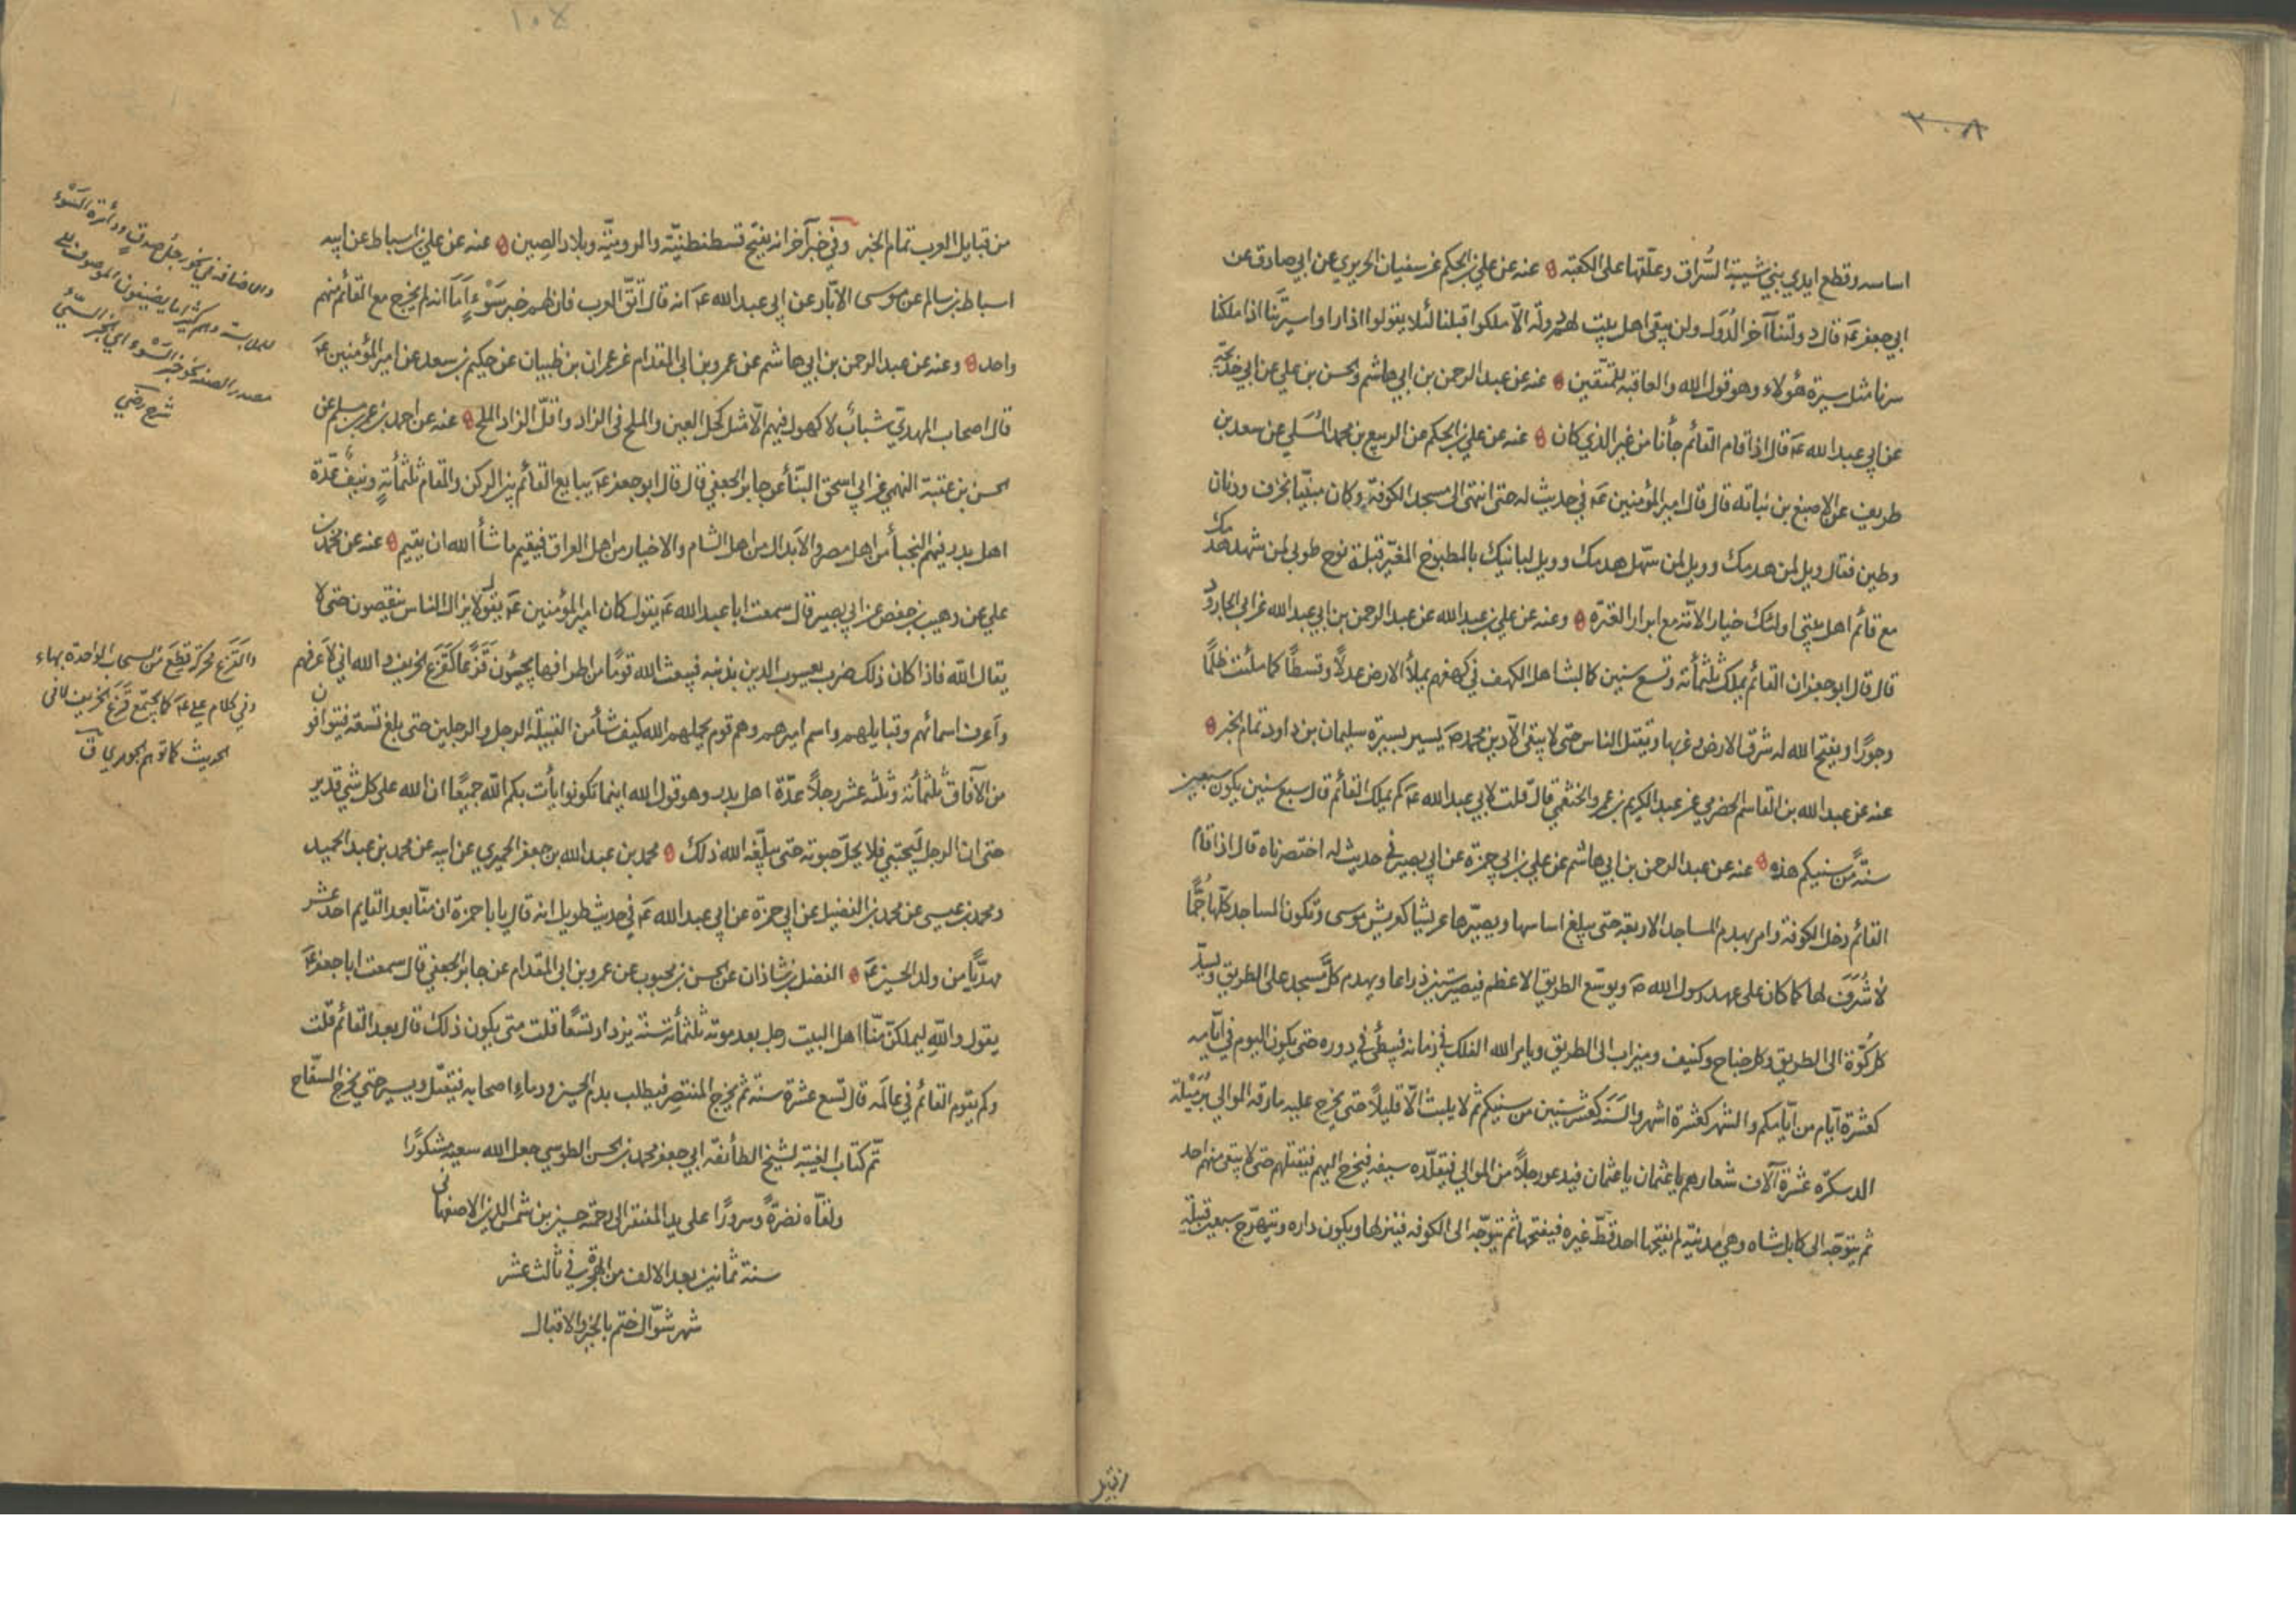 ٢٠٨
اساسه وقطع ايدي بني شيبة السُّراق وعلّقها على الكعبة ۞ عنه عن علي بن الحكم عن سفيان الجريري عن ابي صادق عن
ابي جعفر عَ قال دولتنا آخر الدُوَل ولن يبقى اهل بيت لهم دولة الّا ملكوا قبلنا لئلا يقولوا اذا راوا سيرتنا اذا ملكنا
سرنا مثل سيرة هؤلاء وهو قول الله والعاقبة للمتّقين ۞ عنه عن عبد الرحمن بن ابي هاشم والحسن بن علي عن ابي خديجة
عن ابي عبد الله عَ قال اذا قام القائم جأنا من غير الذي كان ۞ عنه عن علي بن الحكم عن الربيع بن محمد المُسلي عن سعد بن
طريف عن الاصبغ بن نباته قال قال امير المؤمنين عَ في حديث له حتى انتهى الى مسجد الكوفة وكان مبنيّا بخزف ودنان
وطين فقال ويل لمن هدمك وويل لمن سهّل هدمك وويل لبانيك بالمطبوخ المغيّر قبلة نوح طوبى لمن شهد هدمك
مع قائم اهل بيتي اولئك خيار الامّة مع ابرار العترة ۞ وعنه عن علي بن عبد الله عن عبد الرحمن بن ابي عبد الله عن ابي الجارود
قال قال ابو جعفر ان القائم يملك ثلثمأئة وتسع سنين كما لبث اهل الكهف في كهفهم يملأ الارض عدلاً وقسطًا كما ملئت ظلمًا
وجورًا ويفتح الله له شرق الارض وغربها ويقتل الناس حتى لا يبقى الّا دين محمد صَ يسير بسيرة سليمان بن داود تمام الخبر ۞
عنه عن عبد الله بن القاسم الحضرمي عن عبد الكريم بن عمرو الخثعمي قال قلت لابي عبد الله عَ كم يملك القائم قال سبع سنين يكون سبعين
سنةً من سنيكم هذه ۞ عنه عن عبد الرحمن بن ابي هاشم عن علي بن ابي حمزة عن ابي بصير في حديث له اختصرناه قال اذا قام
القائم دخل الكوفة وامر بهدم المساجد الاربعة حتى يبلغ اساسها ويصيّرها عريشا كعريش موسى وتكون المساجد كلّها جُمًّا
لا شُرَف لها كما كان على عهد رسول الله صَ ويوسّع الطريق الاعظم فيصير ستين ذراعا ويهدم كلّ مسجد على الطريق ويسدّ
كل كُوّة الى الطريق وكل جناح وكنيف وميزاب الى الطريق ويامر الله الفلك في زمانه فيبطئ في دوره حتى يكون اليوم في ايّامه
كعشرة ايّام من ايّامكم والشهر كعشرة اشهر والسنة كعشر سنين من سنيكم ثم لا يلبث الّا قليلاً حتى يخرج عليه مارقة الموالي برُمَيلة
الدسكرة عشرة آلاف شعارهم يا عثمان يا عثمان فيدعو رجلاً من الموالي فيقلّده سيفه فيخرج اليهم فيقتلهم حتى لا يبقى منهم احد
ثم يتوجّه الى كابل شاه وهي مدينة لم يفتحها احد قطّ غيره فيفتحها ثم يتوجّه الى الكوفه فينزلها ويكون داره ويبهرج سبعين قبيلة
من قبايل العرب تمام الخبر وفي خبر آخر انه يفتح قسطنطنيّة والروميّة وبلاد الصين ۞ عنه عن علي بن اسباط عن ابيه
اسباط بن سالم عن موسى الابّار عن ابي عبد الله عَ انه قال اتّق العرب فان لهم خبر سَوْءٍ اَمَا انه لم يخرج مع القائم منهم
واحد ۞ وعنه عن عبد الرحمن بن ابي هاشم عن عمرو بن ابي المقدام عن عمران بن ظبيان عن حكيم بن سعد عن امير المؤمنين عَ
قال اصحاب المهديّ شبابٌ لا كهول فيهم الّا مثل كحل العين والملح في الزاد واقلّ الزاد الملح ۞ عنه عن احمد بن عمر بن مسلم عن
الحسن بن عقبة النهمي عن ابي اسحق البنّأ عن جابر الجعفي قال قال ابو جعفر عَ يبايع القائم بين الركن والمقام ثلثمأئةٍ ونيّفٌ عدّة
اهل بدر فيهم النجبأ من اهل مصر والابدال من اهل الشام والاخيار من اهل العراق فيقيم ما شأ الله ان يقيم ۞ عنه عن محمد بن
علي عن وهيب بن حفص عن ابي بصير قال سمعت ابا عبد الله عَ يقول كان امير المؤمنين عَ يقول لا يزال الناس ينقصون حتى لا
يقال الله فاذا كان ذلك ضرب يعسوب الدين بذنبه فيبعث الله قومًا من اطرافها يجيئون قَزَعًا كقَزَع الخريف والله اني لاعرفهم
واَعرف اسمائهم وقبايلهم واسم اميرهم وهم قوم يحملهم الله كيف شأ من القبيلة الرجل والرجلين حتى بلغ تسعة فيتوافون
من الآفاق ثلثمأئة وثلثة عشر رجلاً عدّة اهل بدر وهو قول الله اينما تكونوا يأت بكم الله جميعًا ان الله على كل شيء قدير
حتى ان الرجل ليحتبي فلا يحلّ حبوته حتى يبلّغه الله ذلك ۞ محمد بن عبد الله بن جعفر الحميري عن ابيه عن محمد بن عبد الحميد
ومحمد بن عيسى عن محمد بن الفضيل عن ابي حمزة عن ابي عبد الله عَ في حديث طويل انه قال يا با حمزة ان منّا بعد القايم احد عشر
مهديًّا من ولد الحسين عَ ۞ الفضل بن شاذان عن الحسن بن محبوب عن عمرو بن ابي المقدام عن جابر الجعفي قال سمعت ابا جعفر عَ
يقول واللهِ ليملكنّ منّا اهل البيت رجل بعد موته ثلثمأئة سنة يزداد تسعًا قلت متى يكون ذلك قال بعد القائم قلت
وكم يقوم القائم في عالَمه قال تسع عشرة سنة ثم يخرج المنتصر فيطلب بدم الحسين ودماءِ اصحابه فيقتل ويسبي حتى يخرج السفّاح
تمّ كتاب الغيبة لشيخ الطائفة ابي جعفر محمد بن الحسن الطوسي جعل الله سعيه مشكورًا
ولقّاه نضرةً وسرورًا على يد المفتقر الى رحمة حسين بن شمس الدين الاصفهاني
سنة ثمانين بعد الالف من الهجرة في ثالث عشر
شهر شوّال ختم بالخير والاقبال
والاضافة في نحو رجل صدقٍ ودائرة السَّوْء
للملابسة وهم كثيرا ما يضيفون الموصوف الى
مصدر الصفة نحو خبر السَّوْء اي الخبر السيّئ
شرح رضي
والقزع محركة قطع من السحاب الواحدة بهاء
وفي كلام علي عَ كما يجتمع قزع الخريف لا في
الحديث كما توهم الجوهري ق